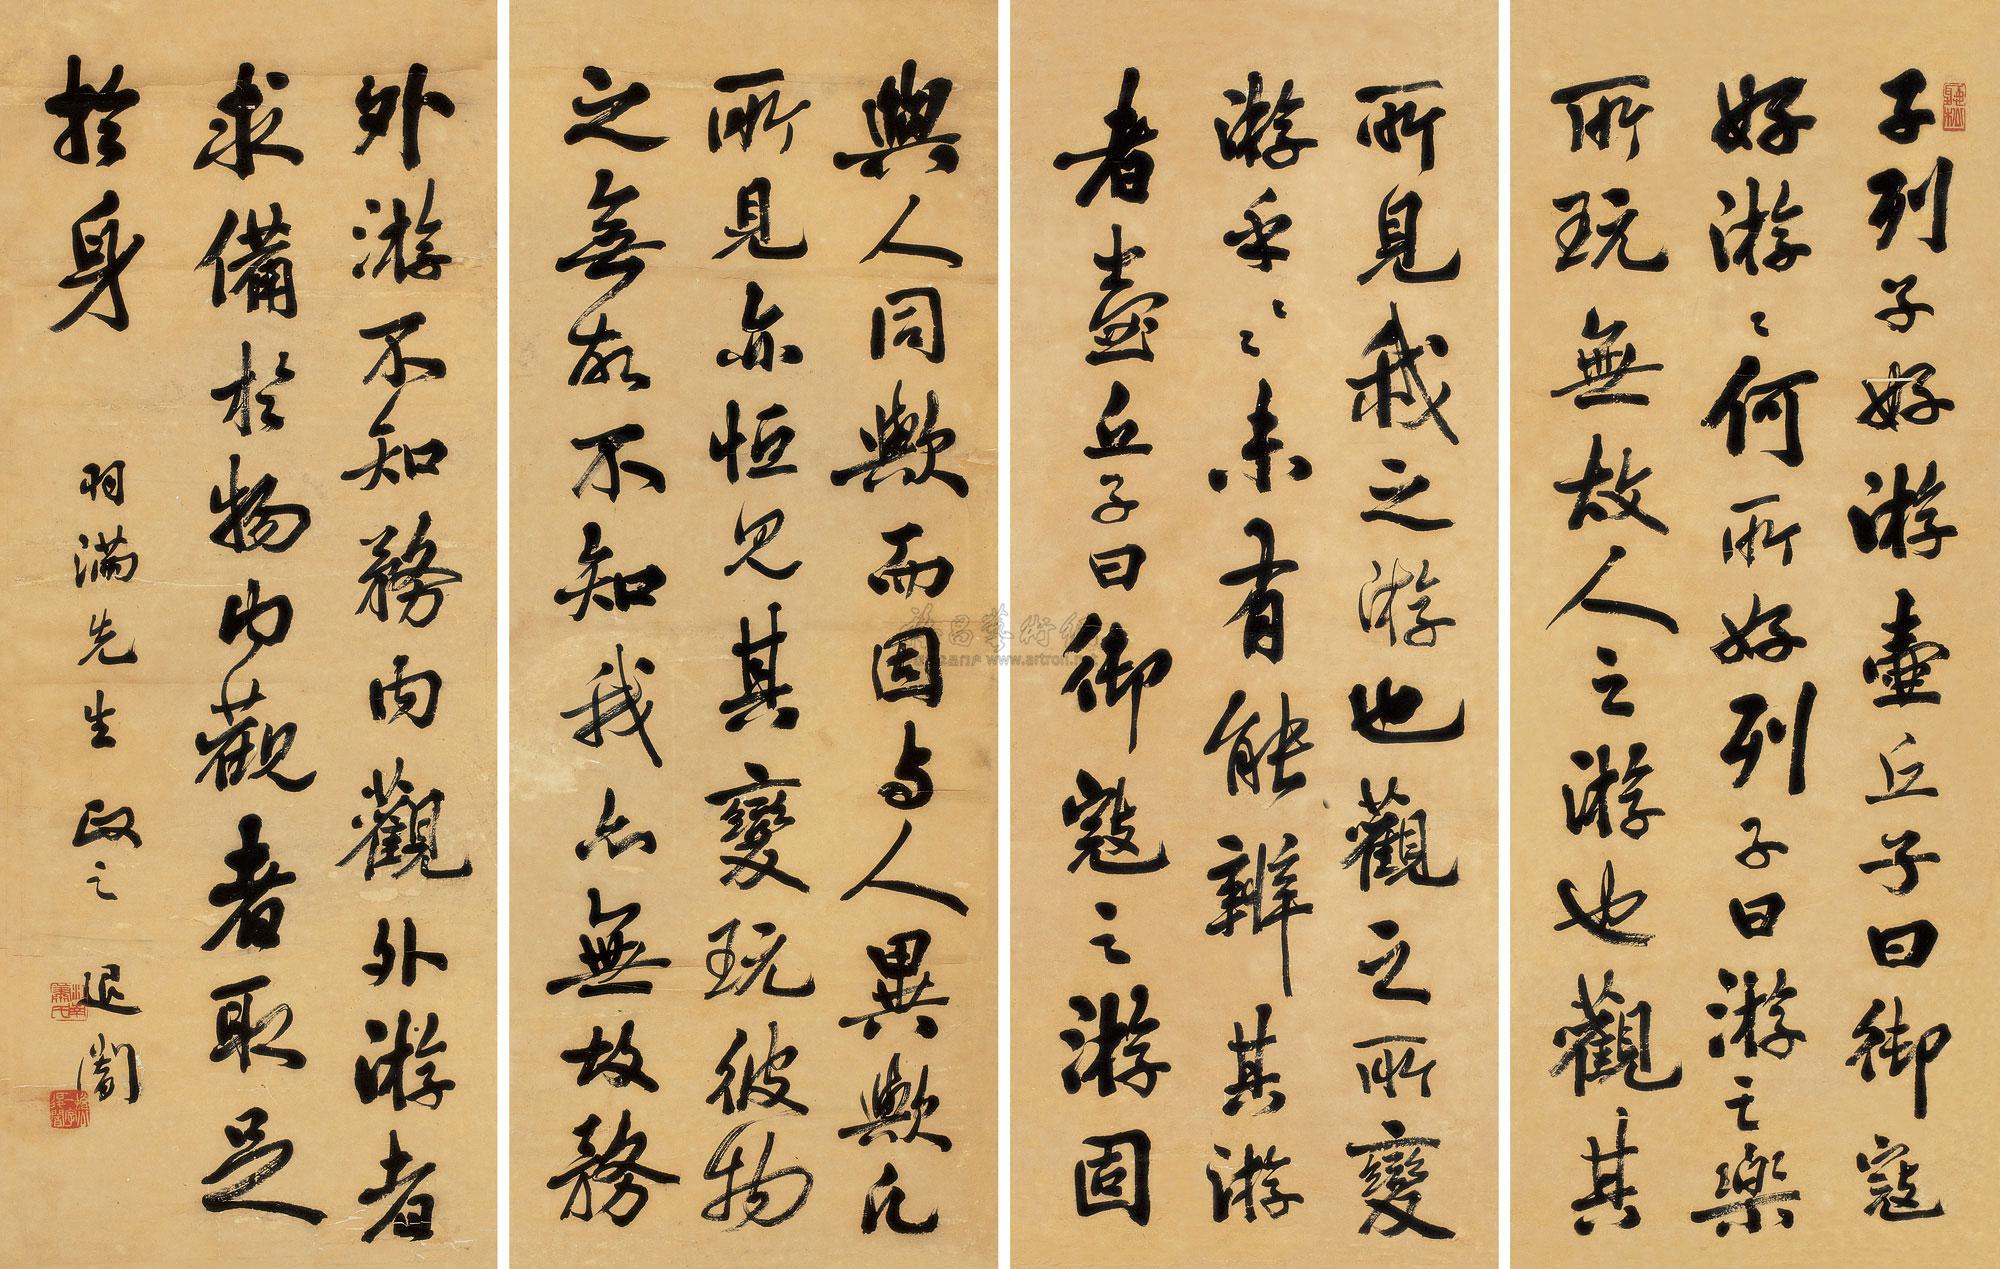 聽松
子列子好游壺丘子曰御寇
好游〻何所好列子曰游之樂
所玩無故人之游也觀其
所見我之游也觀之所變
游乎〻〻未有能辨其游
者壺丘子曰御寇之游固
與人同歟而固与人異歟凡
所見亦恒見其變玩彼物
之無故不知我亦無故務
外游不知務內觀外游者
求備於物內觀者取足
於身
羽滿先生 政之 退闇
江南蕭氏
www.artron.net